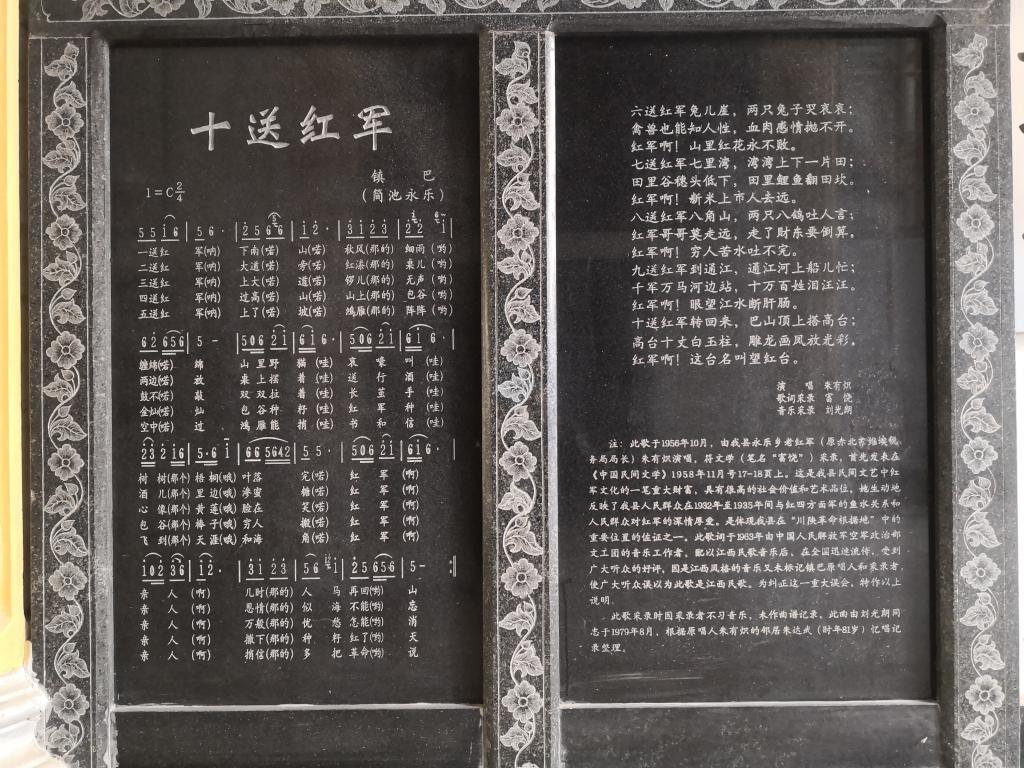 十送红军
镇 巴
1=C 2/4
(简池永乐)
5 5 i 6 | 5 6 · | 2 5 6 6 | i 2 · | 3 i 2 3 | 2 2 i |
一送红 军(呐) 下南(喏) 山(喏) 秋风(那的) 细雨(哟)
二送红 军(呐) 大道(喏) 旁(喏) 红漆(那的) 桌儿(哟)
三送红 军(呐) 上大(喏) 道(喏) 锣儿(那的) 无声(哟)
四送红 军(呐) 过高(喏) 山(喏) 山上(那的) 包谷(哟)
五送红 军(呐) 上了(喏) 坡(喏) 鸿雁(那的) 阵阵(哟)
6 2 6 5 6 | 5 - | 5 0 6 2 i | 6 i 6 · | 5 0 6 2 i | 6 i 6 · |
缠绵(喏) 绵 山里野 猫(哇) 哀嚎 叫(哇)
两边(喏) 放 桌上摆 着(哇) 送行 酒(哇)
鼓不(喏) 敲 双双拉 着(哇) 长茧 手(哇)
金灿(喏) 灿 包谷种 籽(哇) 红军 种(哇)
空中(喏) 过 鸿雁能 捎(哇) 书和 信(哇)
2 3 2 i 6 | 5 · 6 i | 6 6 5 6 4 2 | 5 5 · | 5 0 6 2 i | 6 i 6 · |
树树(那个) 梧桐(哦) 叶落 完(喏) 红军(啊)
酒儿(那个) 里边(哦) 渗蜜 糖(喏) 红军(啊)
心像(那个) 黄莲(哦) 脸在 笑(喏) 红军(啊)
包谷(那个) 棒子(哦) 穷人 搬(喏) 红军(啊)
飞到(那个) 天涯(哦) 和海 角(喏) 红军(啊)
i 0 2 3 6 | i 2 · | 3 i 2 3 | 5 6 i | 2 5 6 5 6 | 5 - :‖
亲人(啊) 几时(那的) 人马 再回(哟) 山
亲人(啊) 恩情(那的) 似海 不能(哟) 忘
亲人(啊) 万般(那的) 忧愁 怎能(哟) 消
亲人(啊) 撒下(那的) 种籽 红了(哟) 天
亲人(啊) 捎信(那的) 多把 革命(哟) 说
六送红军兔儿崖，两只兔子哭哀哀；
禽兽也能知人性，血肉感情抛不开。
红军啊！山里红花永不败。
七送红军七里湾，湾湾上下一片田；
田里谷穗头低下，田里鲤鱼翻田坎。
红军啊！新米上市人去远。
八送红军八角山，两只八鸽吐人言；
红军哥哥莫走远，走了财东要倒算。
红军啊！穷人苦水吐不完。
九送红军到通江，通江河上船儿忙；
千军万马河边站，十万百姓泪汪汪。
红军啊！眼望江水断肝肠。
十送红军转回来，巴山顶上搭高台；
高台十丈白玉柱，雕龙画凤放光彩。
红军啊！这台名叫望红台。
演 唱 朱有炽
歌词采录 富 饶
音乐采录 刘光朗
注：此歌于1956年10月，由我县永乐乡老红军（原赤北苏维埃税
务局局长）朱有炽演唱，符文学（笔名“富饶”）采录，首先发表在
《中国民间文学》1958年11月号17-18页上，这是我县民间文艺中红
军文化的一笔重大财富，具有很高的社会价值和艺术品位，她生动地
反映了我县人民群众在1932年至1935年间与红四方面军的鱼水关系和
人民群众对红军的深情厚爱，是体现我县在“川陕革命根据地”中的
重要位置的佐证之一。此歌词于1963年由中国人民解放军空军政治部
文工团的音乐工作者，配以江西民歌音乐后，在全国迅速流传，受到
广大听众的好评，因是江西风格的音乐又未标记镇巴原唱人和采录者，
使广大听众误以为此歌是江西民歌。为纠正这一重大误会，特作以上
说明。
此歌采录时因采录者不习音乐，未作曲谱记录，此曲由刘光朗同
志于1979年8月，根据原唱人朱有炽的邻居朱达武（时年81岁）忆唱记
录整理。